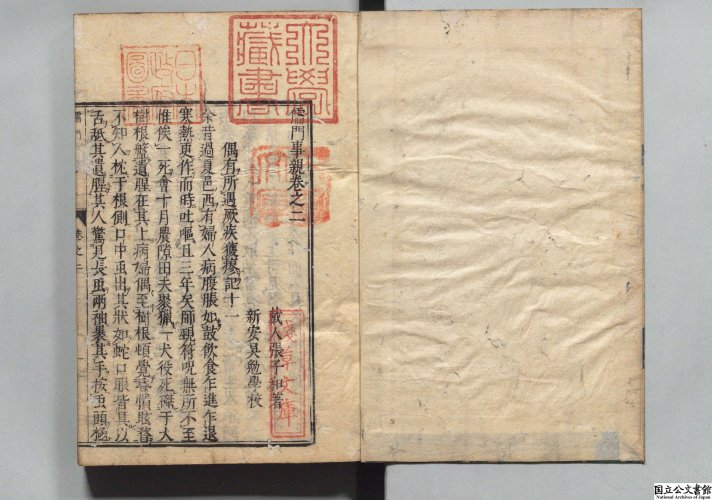 儒門事親卷之二
戴人張子和著
新安吳勉學校
偶有所遇厥疾獲瘳記十一
余昔過夏邑西有婦人病腹脹如鼓飲食乍進乍退
寒熱更作而時吐嘔且三年矣師覡符呪無所不至
惟俟一死會十月農隙田夫聚獵一犬役死磔于大
樹根盤遺腥在其上病婦偶至樹根頓覺昏憒眩瞀
不知人枕于根側口中虫出其狀如蛇口眼皆具以
舌舐其遺腥其人驚見長虫兩袖裹其手按虫頭極
儒門
卷之二
大學藏書
日本政府圖書
淺草文庫
国立公文書館
National Archives of Japan